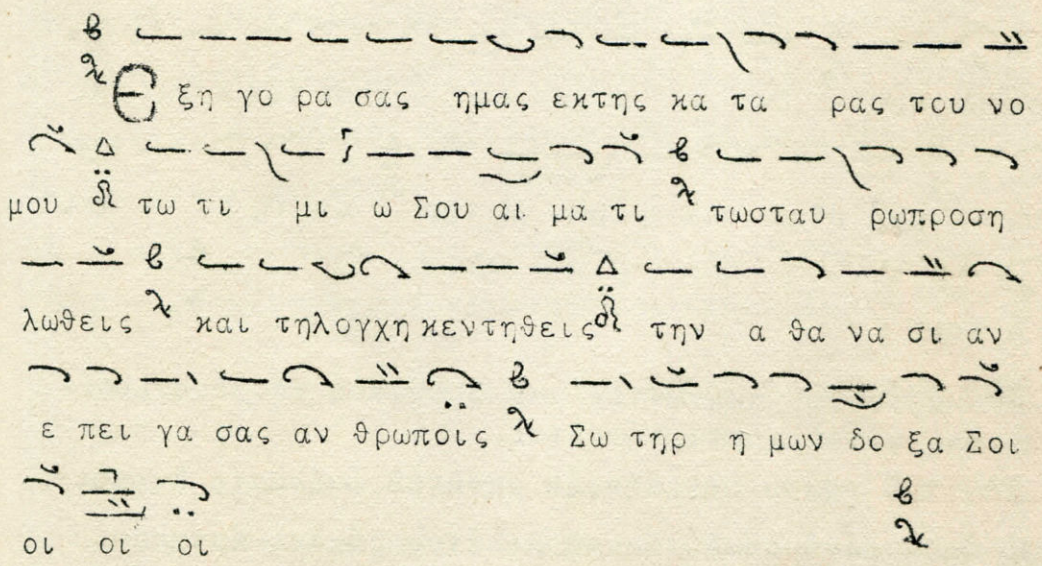 Ε ξη γο ρα σας ημας εκτης κα τα ρας του νο
μου τω τι μι ω Σου αι μα τι τωσταυ ρωπροση
λωθεις και τηλογχη κεντηθεις την α θα να σι αν
ε πει γα σας αν θρωποις Σω τηρ η μων δο ξα Σοι
οι οι οι